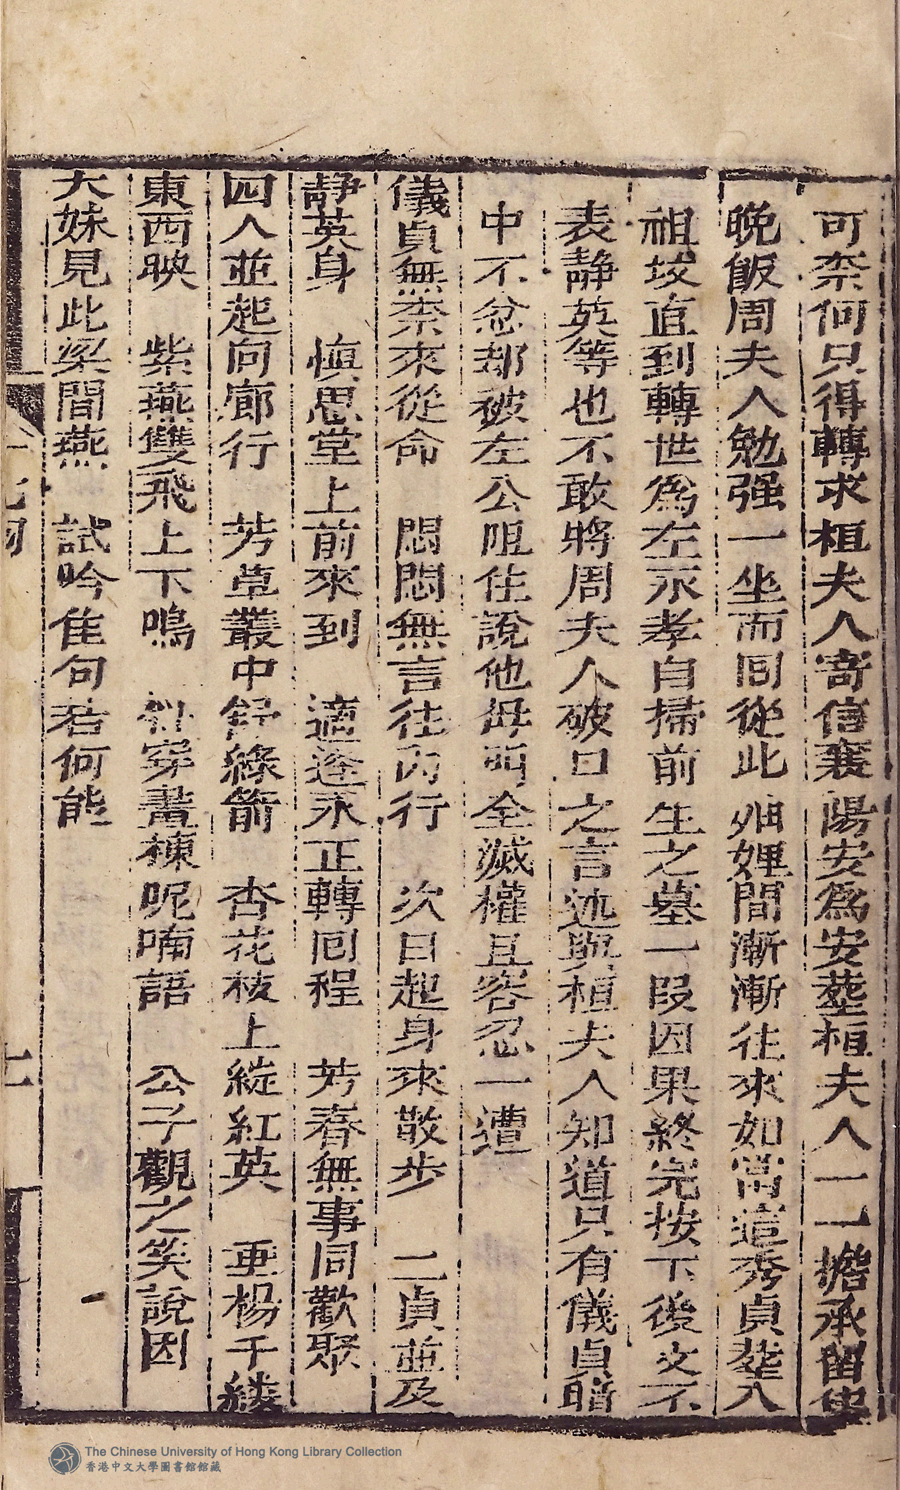 可柰何只得轉求桓夫人寄信襄陽安為安塟桓夫人一一擔承留使
晚飯周夫人勉强一坐而囘從此妯娌間漸漸往來如常這秀貞塟入
祖坟直到轉世為左永孝自掃前生之墓一段因果終完按下後文不
表靜英等也不敢將周夫人破口之言述與桓夫人知道只有儀貞暗
中不忿却被左公阻住說他母而全滅權且容忍一遭
儀貞無柰來從命　悶悶無言往内行　次日起身來散步　二貞並及
靜英身　慎思堂上前來到　適逢永正轉囘程　芳春無事同歡聚
四人並起向廊行　芳草叢中舒綠箭　杏花枝上綻紅英　垂楊千縷
東西映　紫燕雙飛上下鳴　穿畫棟呢喃語　公子觀之笑說因
大妹見此梁間燕　試吟佳句若何能
The Chinese University of Hong Kong Library Collection
香港中文大學圖書館館藏